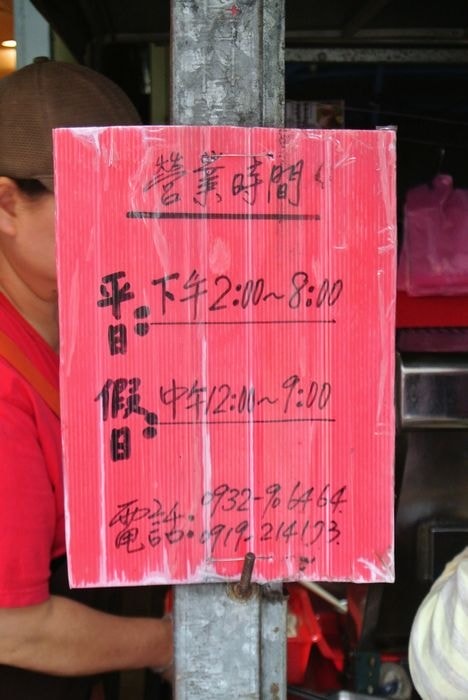 營業時間
平日：下午2:00~8:00
假日：中午12:00~9:00
電話：0932-96464
0919-214173